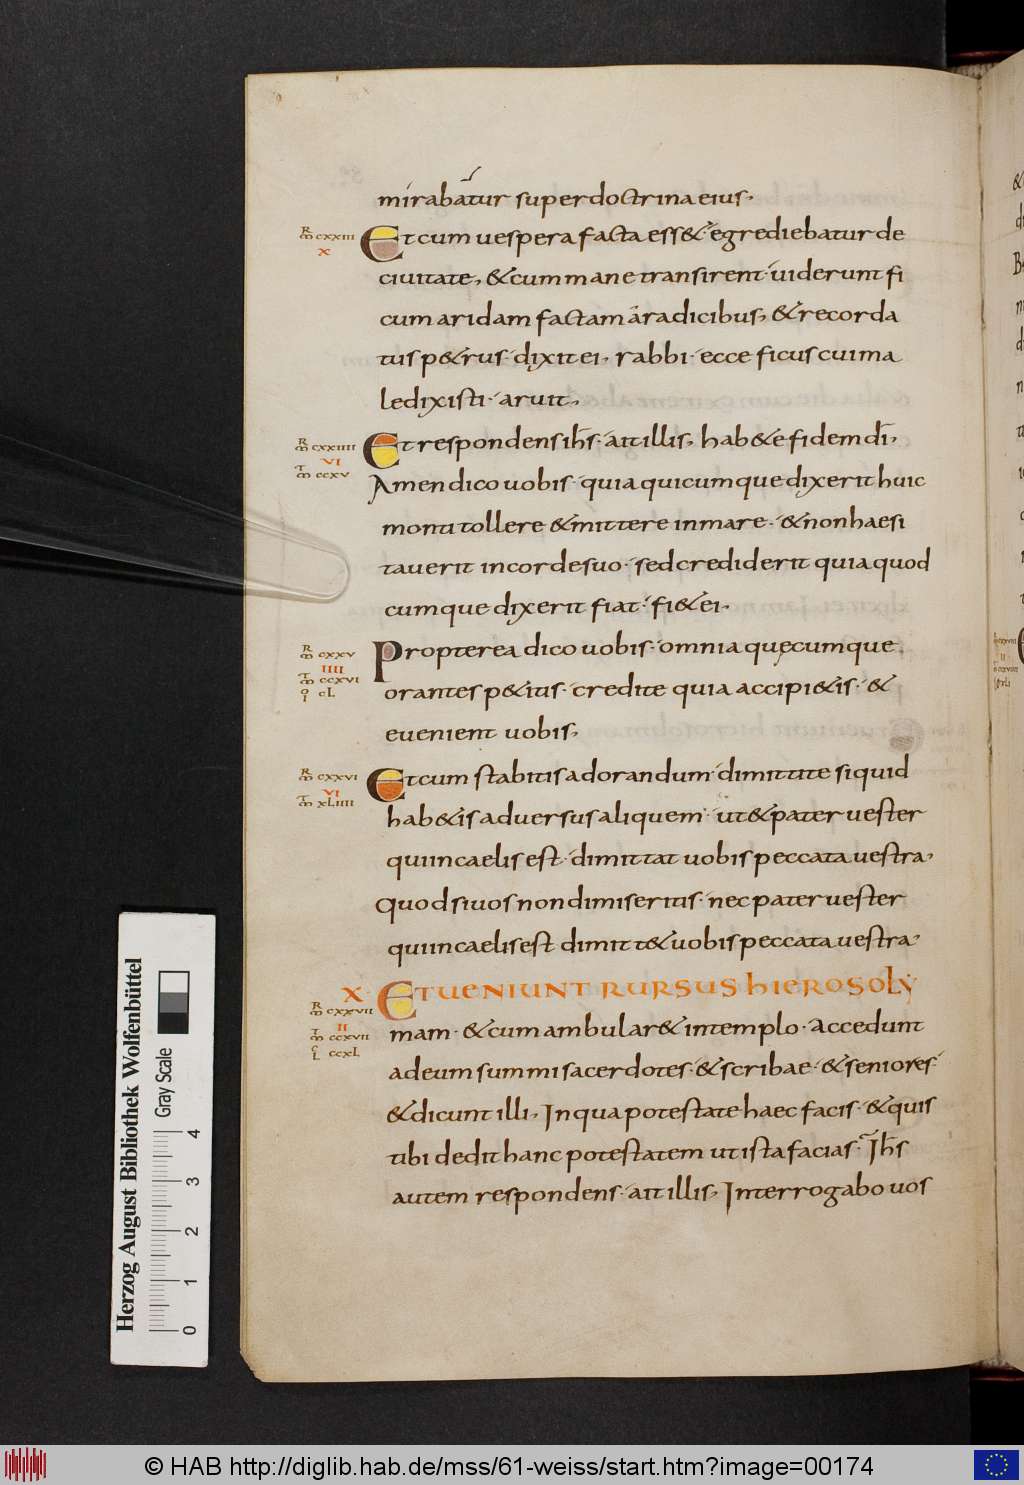 mirabatur super doctrina eius,
R M CXXIII
X
Et cum uespera facta ess& egrediebatur de
ciuitate, & cum mane transirent uiderunt fi
cum aridam factam aradicibus, & recorda
tus p&rus· dixit ei, rabbi· ecce ficus cui ma
ledixisti· aruit,
R M CXXIIII
VI
M T CCXV
Et respondens ih̄s· ait illis, hab&e fidem dī,
Amen dico uobis· quia quicumque dixerit huic
monti tollere & mittere in mare· & non haesi
tauerit in corde suo· sed crediderit quia quod
cumque dixerit fiat· fi& ei,
R M CXXV
IIII
M T CCXVI
IO CL
Propterea dico uobis· omnia quęcumque
orantes p&itis· credite quia accipi&is· &
euenient uobis,
R M CXXVI
VI
M T XLIIII
Et cum stabitis adorandum· dimittite siquid
hab&is aduersus aliquem· ut & pater uester
qui in caelis est· dimittat uobis peccata uestra,
Quod si uos non dimiseritis· nec pater uester
qui in caelis est dimitt& uobis peccata uestra·
X·
R M CXXVII
II
M T CCXVII
L C CCXL
ET UENIUNT RURSUS HIEROSOLY
mam· & cum ambular& in templo· Accedunt
ad eum summi sacerdotes· & scribae· & seniores·
& dicunt illi, In qua potestate haec facis· & quis
tibi dedit hanc potestatem ut ista facias· Ih̄s
autem respondens· ait illis, Interrogabo uos
Herzog August Bibliothek Wolfenbüttel
Gray Scale
0 1 2 3 4
© HAB http://diglib.hab.de/mss/61-weiss/start.htm?image=00174